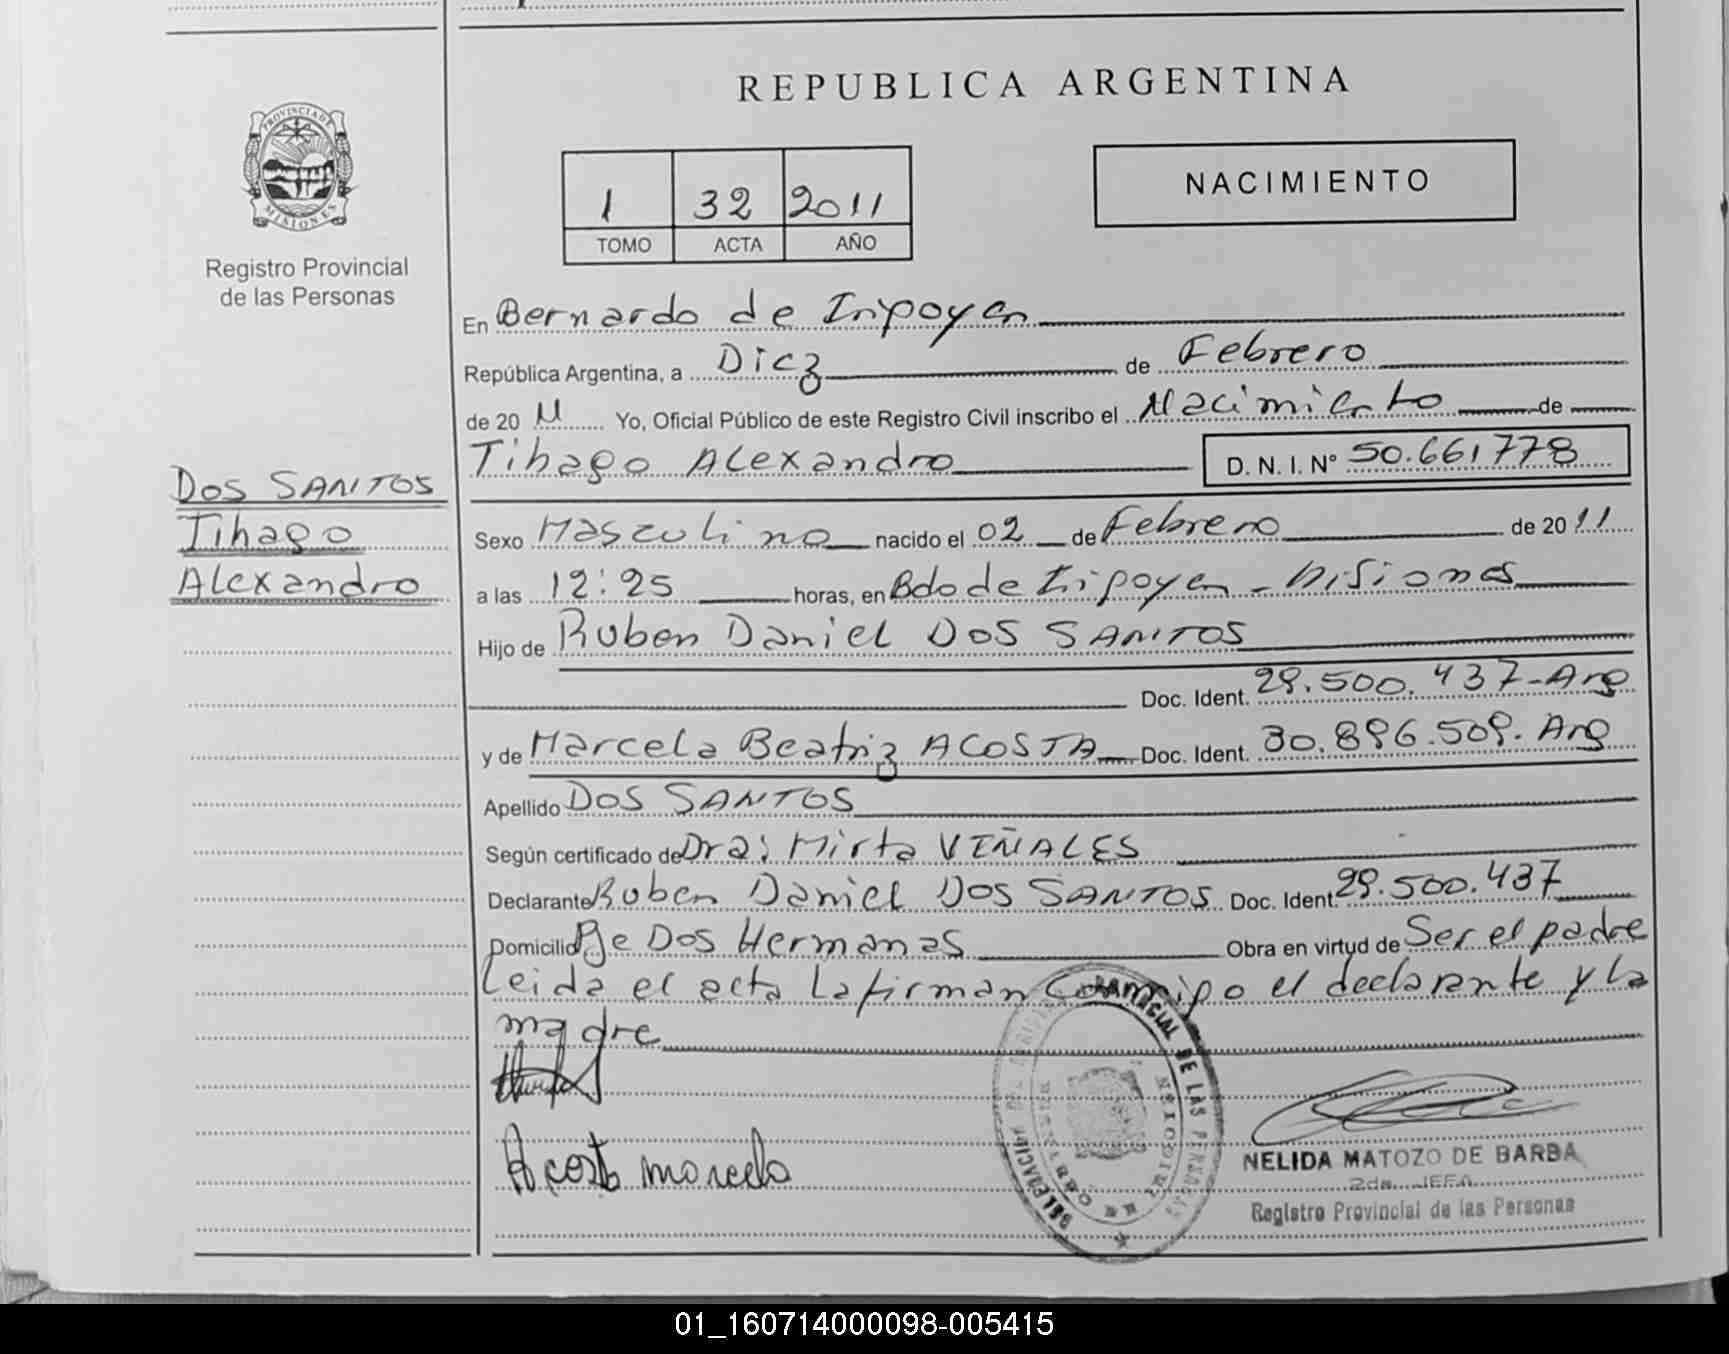 REPUBLICA ARGENTINA
1 32 2011
TOMO ACTA AÑO
NACIMIENTO
PROVINCIA DE MISIONES
Registro Provincial
de las Personas
DOS SANTOS
Tihago
Alexandro
En Bernardo de Irigoyen
República Argentina, a Diez de Febrero
de 20 11 Yo, Oficial Público de este Registro Civil inscribo el Nacimiento de
Tihago Alexandro D. N. I. Nº 50.661778
Sexo Masculino nacido el 02 de Febrero de 2011
a las 12:25 horas, en Bdo de Irigoyen - Misiones
Hijo de Ruben Daniel DOS SANTOS
Doc. Ident. 29.500.437-Arg
y de Marcela Beatriz ACOSTA Doc. Ident. 30.896.509. Arg
Apellido DOS SANTOS
Según certificado de Dra: Mirta VIÑALES
Declarante Ruben Daniel DOS SANTOS Doc. Ident. 29.500.437
Domicilio Pje Dos Hermanas Obra en virtud de Ser el padre
Leida el acta La firman Conmigo el declarante y la
madre
Acosta marcela
NELIDA MATOZO DE BARBA
2da. JEFA
Registro Provincial de las Personas
01_160714000098-005415